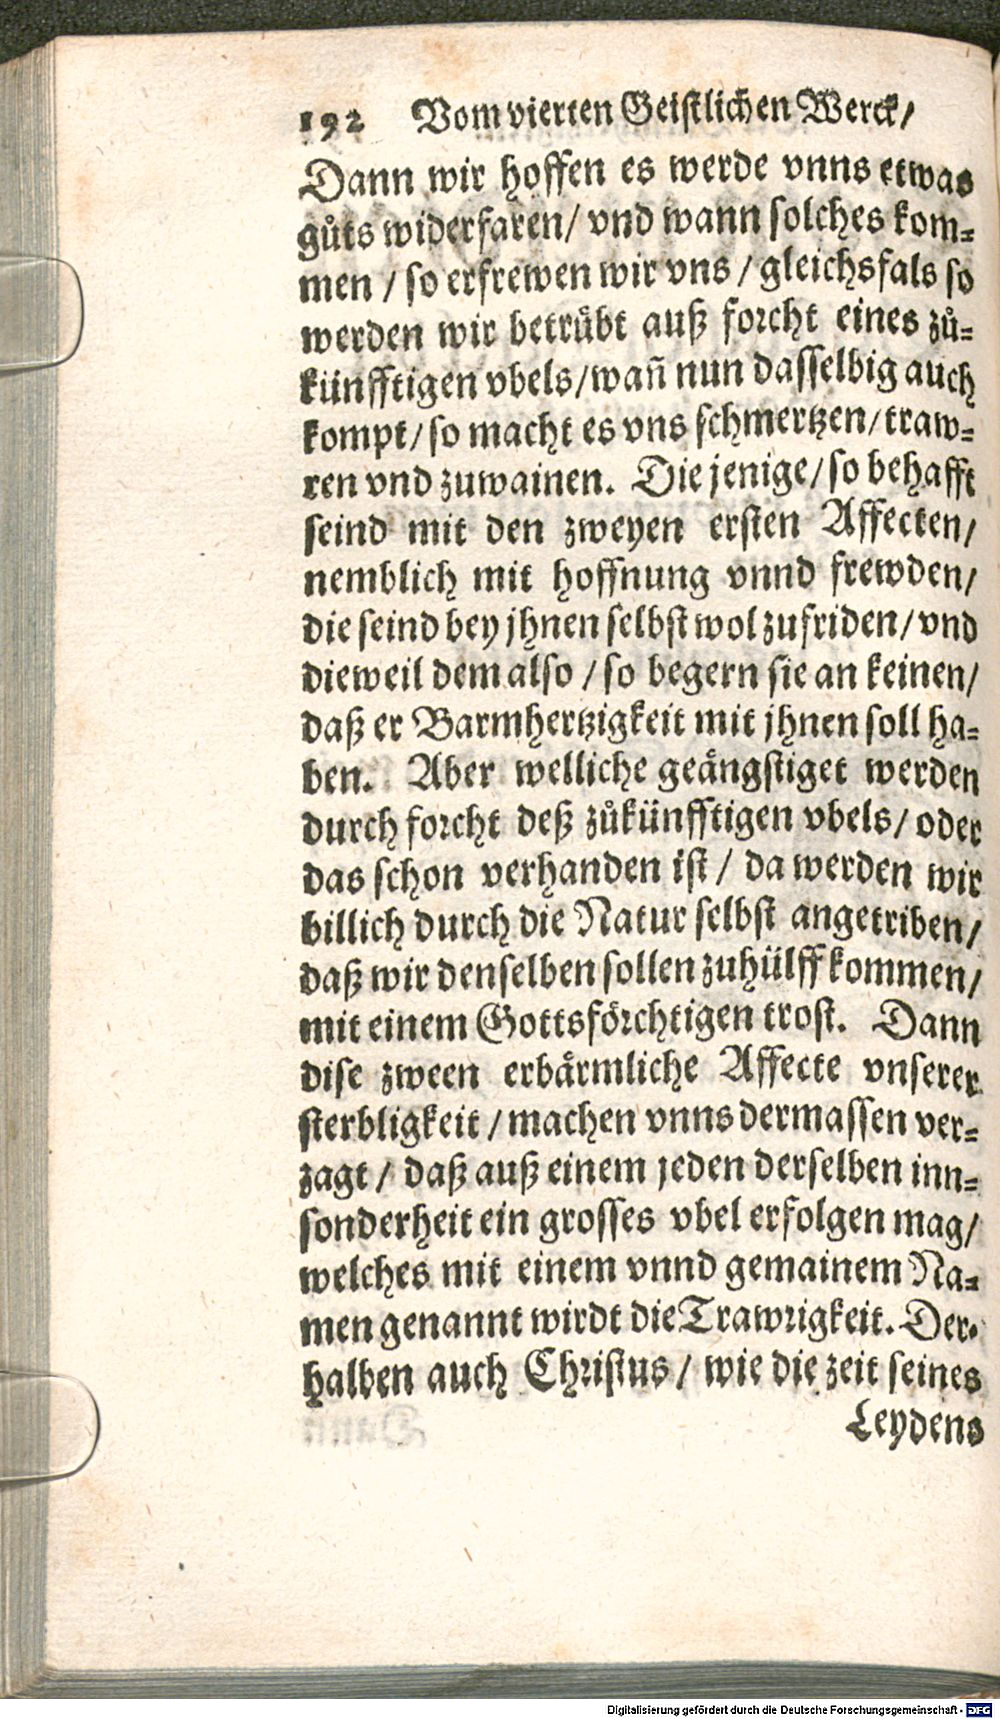 192 Vom vierten Geistlichen Werck/
Dann wir hoffen es werde vnns etwas
gůts widerfaren/ vnd wann solches kom⸗
men / so erfrewen wir vns / gleichsfals so
werden wir betrůbt auß forcht eines zů⸗
künfftigen vbels/wañ nun dasselbig auch
kompt/ so macht es vns schmertzen/ traw⸗
ren vnd zuwainen. Die jenige/ so behafft
seind mit den zweyen ersten Affecten/
nemblich mit hoffnung vnnd frewden/
die seind bey jhnen selbst wol zufriden/ vnd
dieweil dem also / so begern sie an keinen/
daß er Barmhertzigkeit mit jhnen soll ha⸗
ben. Aber welliche geångstiget werden
durch forcht deß zůkünfftigen vbels/ oder
das schon verhanden ist / da werden wir
billich durch die Natur selbst angetriben/
daß wir denselben sollen zuhülff kommen/
mit einem Gottsförchtigen trost. Dann
dise zween erbårmliche Affecte vnserer
sterbligkeit / machen vnns dermassen ver⸗
zagt / daß auß einem jeden derselben inn⸗
sonderheit ein grosses vbel erfolgen mag/
welches mit einem vnnd gemainem Na⸗
men genannt wirdt die Trawrigkeit. Der⸗
halben auch Christus / wie die zeit seines
Leydens
Digitalisierung gefördert durch die Deutsche Forschungsgemeinschaft - DFG